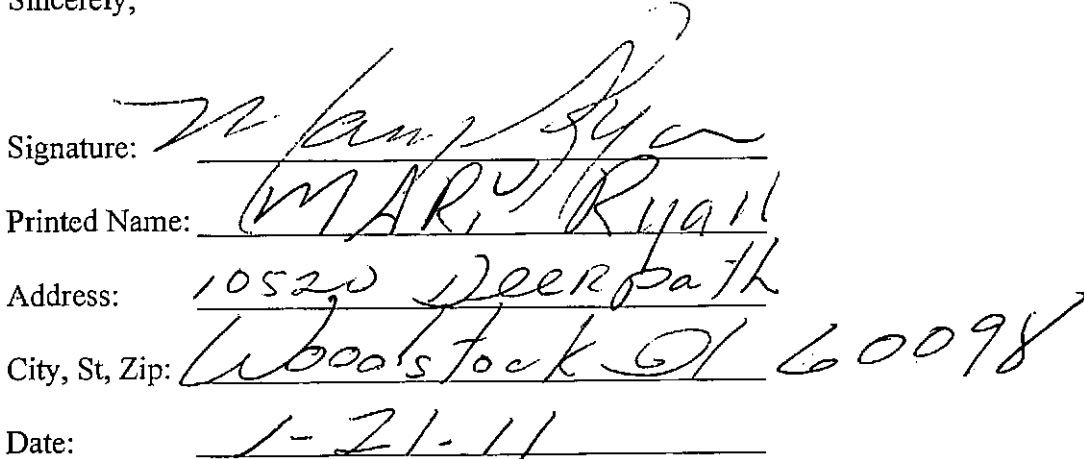 Sincerely,
Signature: Mary Ryan
Printed Name: MARY Ryan
Address: 10520 Deerpath
City, St, Zip: Woodstock Il 60098
Date: 1-21-11